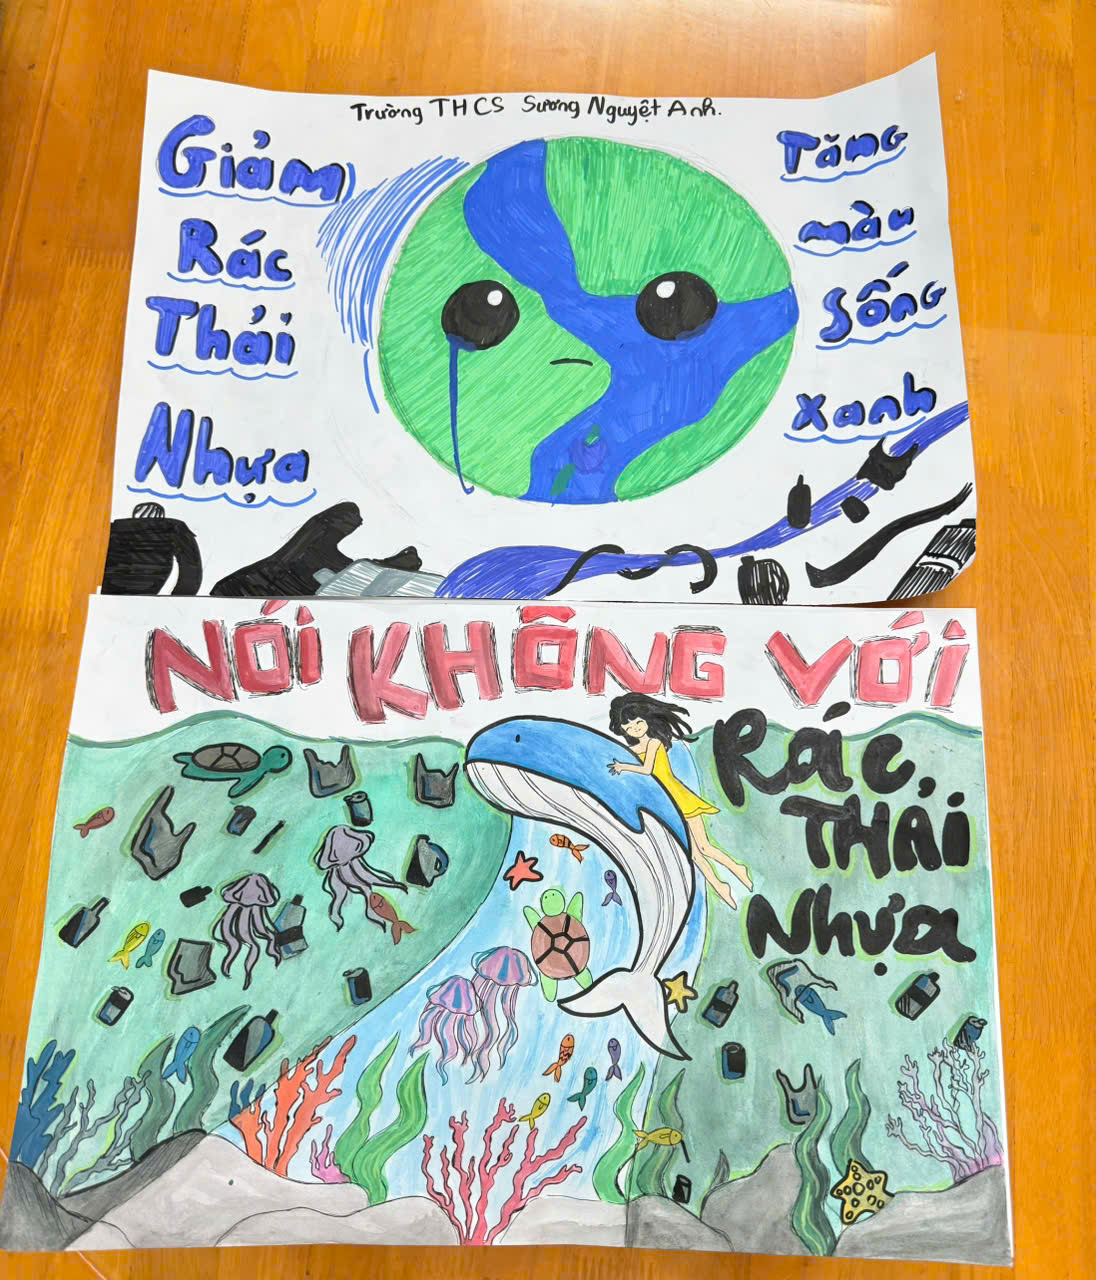 Trường THCS Sương Nguyệt Anh.
Giảm
Rác
Thải
Nhựa
Tăng
màu
Sống
xanh
NÓI KHÔNG VỚI
Rác
THẢI
Nhựa